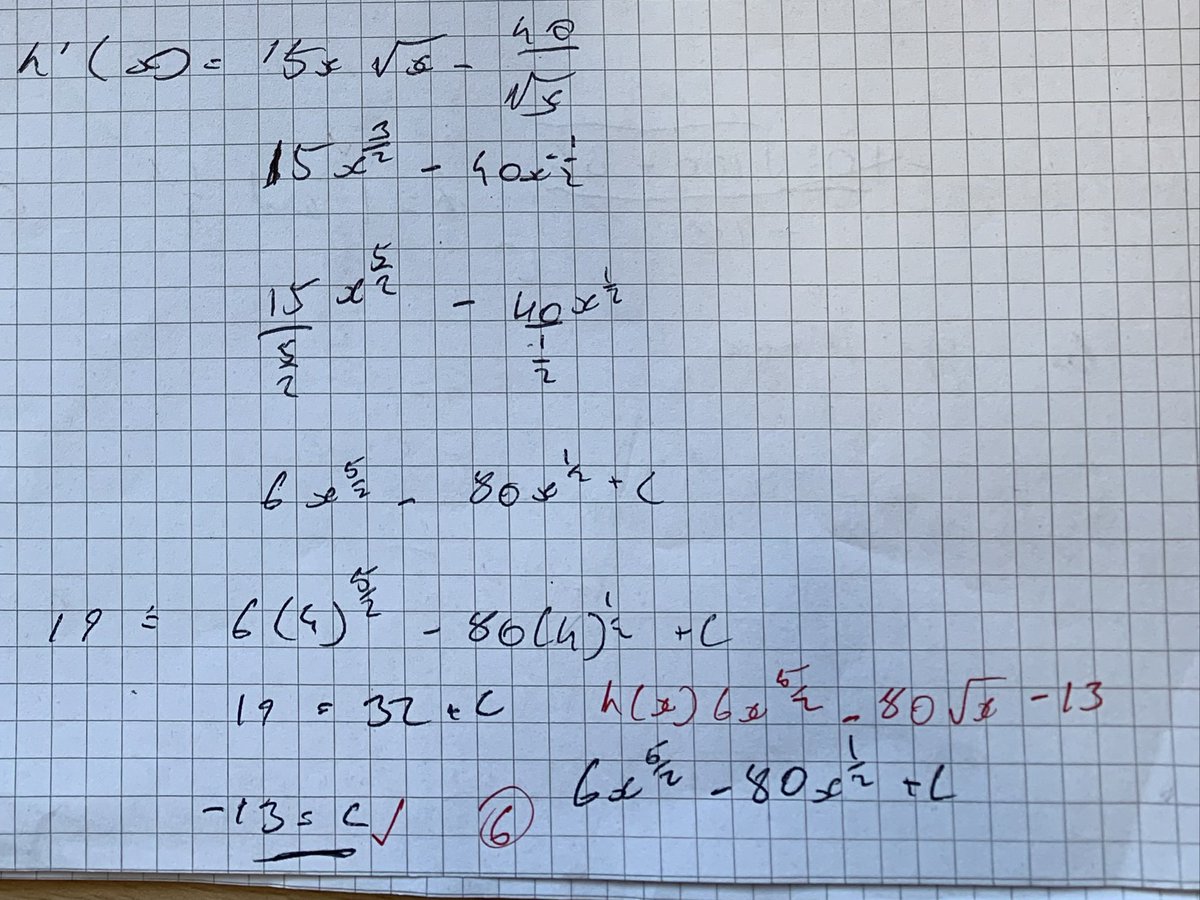 h'(x) = 15x √x - 40/√x
15x^(3/2) - 40x^(-1/2)
15/(5/2) x^(5/2) - 40/(1/2) x^(1/2)
6x^(5/2) - 80x^(1/2) + C
19 = 6(4)^(5/2) - 80(4)^(1/2) + C
19 = 32 + C
h(x) 6x^(5/2) - 80√x - 13
6x^(5/2) - 80x^(1/2) + C
-13 = C ✓
6